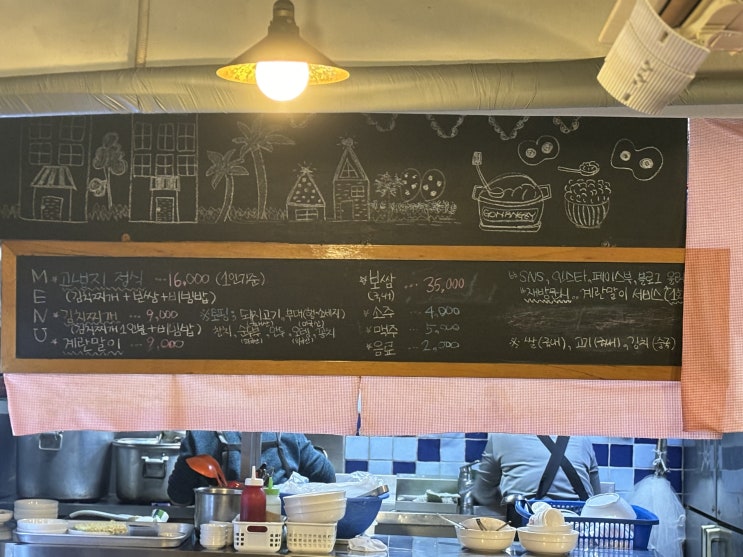 MENU
* 고바지 정식 ... 16,000 (1인기준)
(김치찌개 + 보쌈 + 비빔밥)
* 김치찌개 ... 9,000
(김치찌개 1인분 + 비빔밥)
* 계란말이 ... 9,000
※ 토핑: 돼지고기, 부대(햄·소세지)
참치, 만두, 오뎅
* 보쌈 ... 35,000
(국내)
* 소주 ... 4,000
* 맥주 ... 5,000
* 음료 ... 2,000
SNS, 인스타, 페이스북, 블로그
계란말이 서비스
※ 쌀(국내), 고기(국내), 김치(중국)